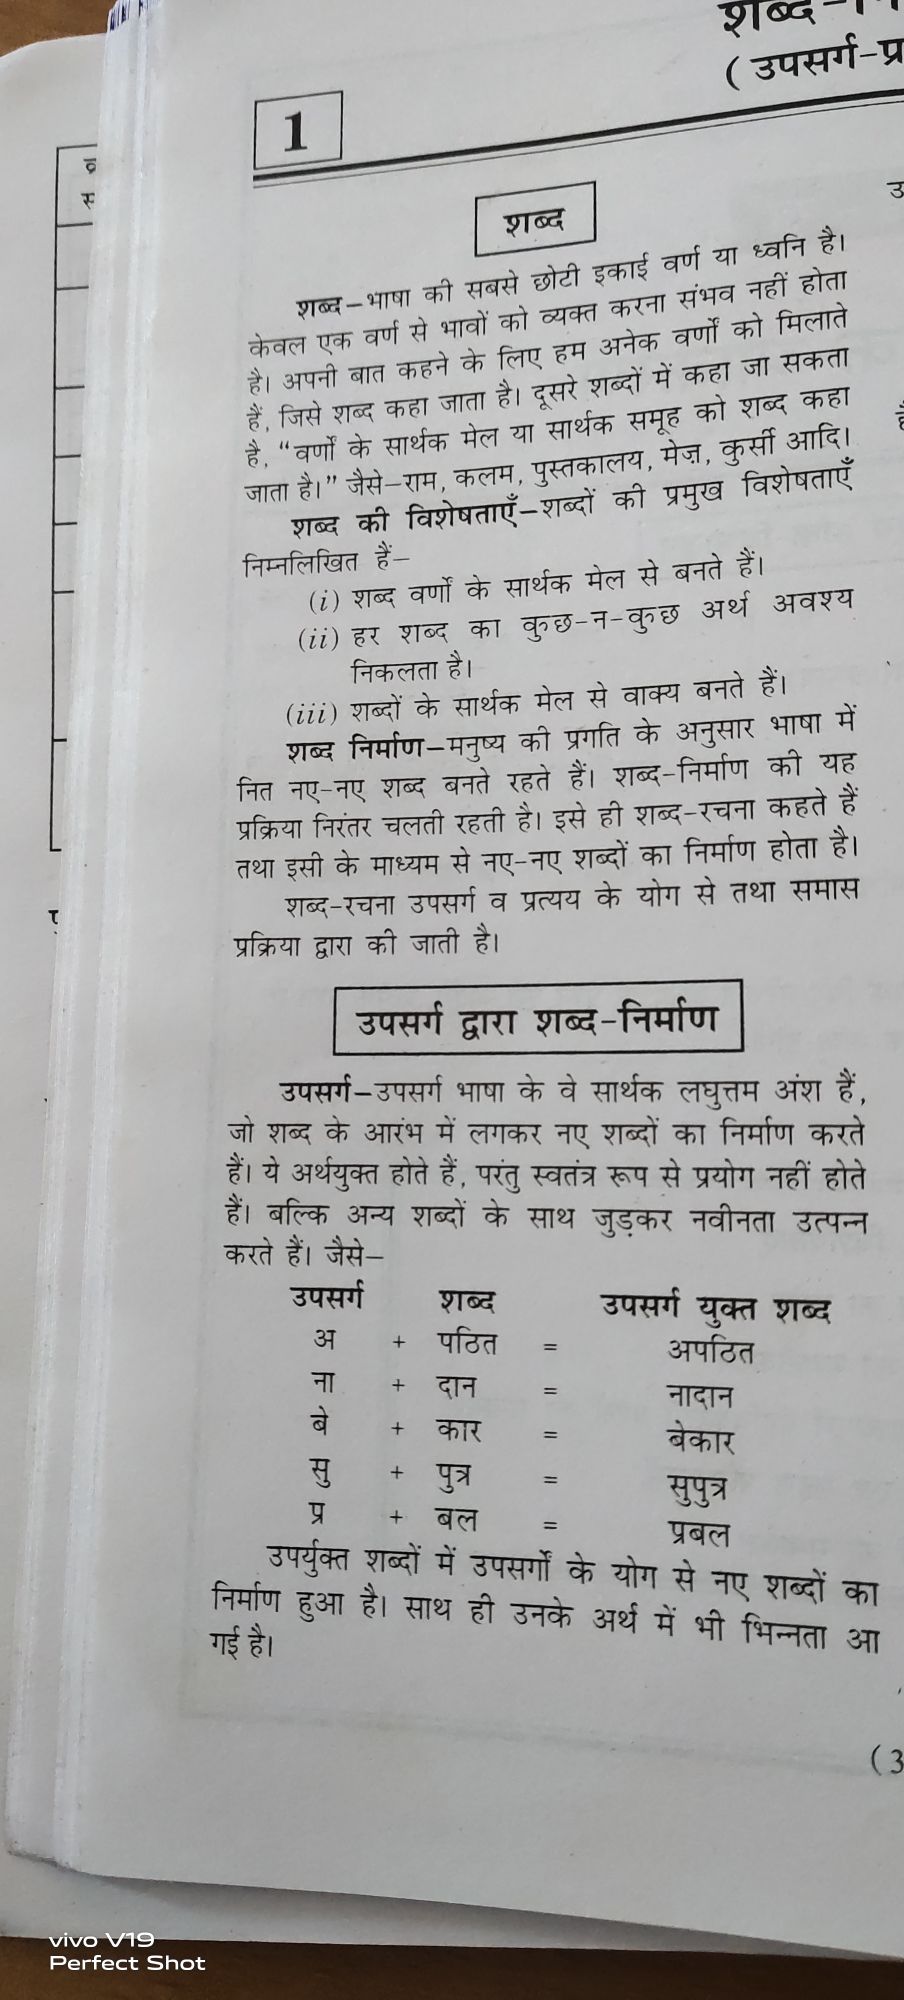 (उपसर्ग-प्र
1
शब्द
शब्द–भाषा की सबसे छोटी इकाई वर्ण या ध्वनि है।
केवल एक वर्ण से भावों को व्यक्त करना संभव नहीं होता
है। अपनी बात कहने के लिए हम अनेक वर्णों को मिलाते
हैं, जिसे शब्द कहा जाता है। दूसरे शब्दों में कहा जा सकता
है, “वर्णों के सार्थक मेल या सार्थक समूह को शब्द कहा
जाता है।” जैसे–राम, कलम, पुस्तकालय, मेज़, कुर्सी आदि।
शब्द की विशेषताएँ–शब्दों की प्रमुख विशेषताएँ
निम्नलिखित हैं–
(i) शब्द वर्णों के सार्थक मेल से बनते हैं।
(ii) हर शब्द का कुछ-न-कुछ अर्थ अवश्य
निकलता है।
(iii) शब्दों के सार्थक मेल से वाक्य बनते हैं।
शब्द निर्माण–मनुष्य की प्रगति के अनुसार भाषा में
नित नए-नए शब्द बनते रहते हैं। शब्द-निर्माण की यह
प्रक्रिया निरंतर चलती रहती है। इसे ही शब्द-रचना कहते हैं
तथा इसी के माध्यम से नए-नए शब्दों का निर्माण होता है।
शब्द-रचना उपसर्ग व प्रत्यय के योग से तथा समास
प्रक्रिया द्वारा की जाती है।
उपसर्ग द्वारा शब्द-निर्माण
उपसर्ग–उपसर्ग भाषा के वे सार्थक लघुत्तम अंश हैं,
जो शब्द के आरंभ में लगकर नए शब्दों का निर्माण करते
हैं। ये अर्थयुक्त होते हैं, परंतु स्वतंत्र रूप से प्रयोग नहीं होते
हैं। बल्कि अन्य शब्दों के साथ जुड़कर नवीनता उत्पन्न
करते हैं। जैसे–
उपसर्ग शब्द उपसर्ग युक्त शब्द
अ + पठित = अपठित
ना + दान = नादान
बे + कार = बेकार
सु + पुत्र = सुपुत्र
प्र + बल = प्रबल
उपर्युक्त शब्दों में उपसर्गों के योग से नए शब्दों का
निर्माण हुआ है। साथ ही उनके अर्थ में भी भिन्नता आ
गई है।
(3
vivo V19
Perfect Shot